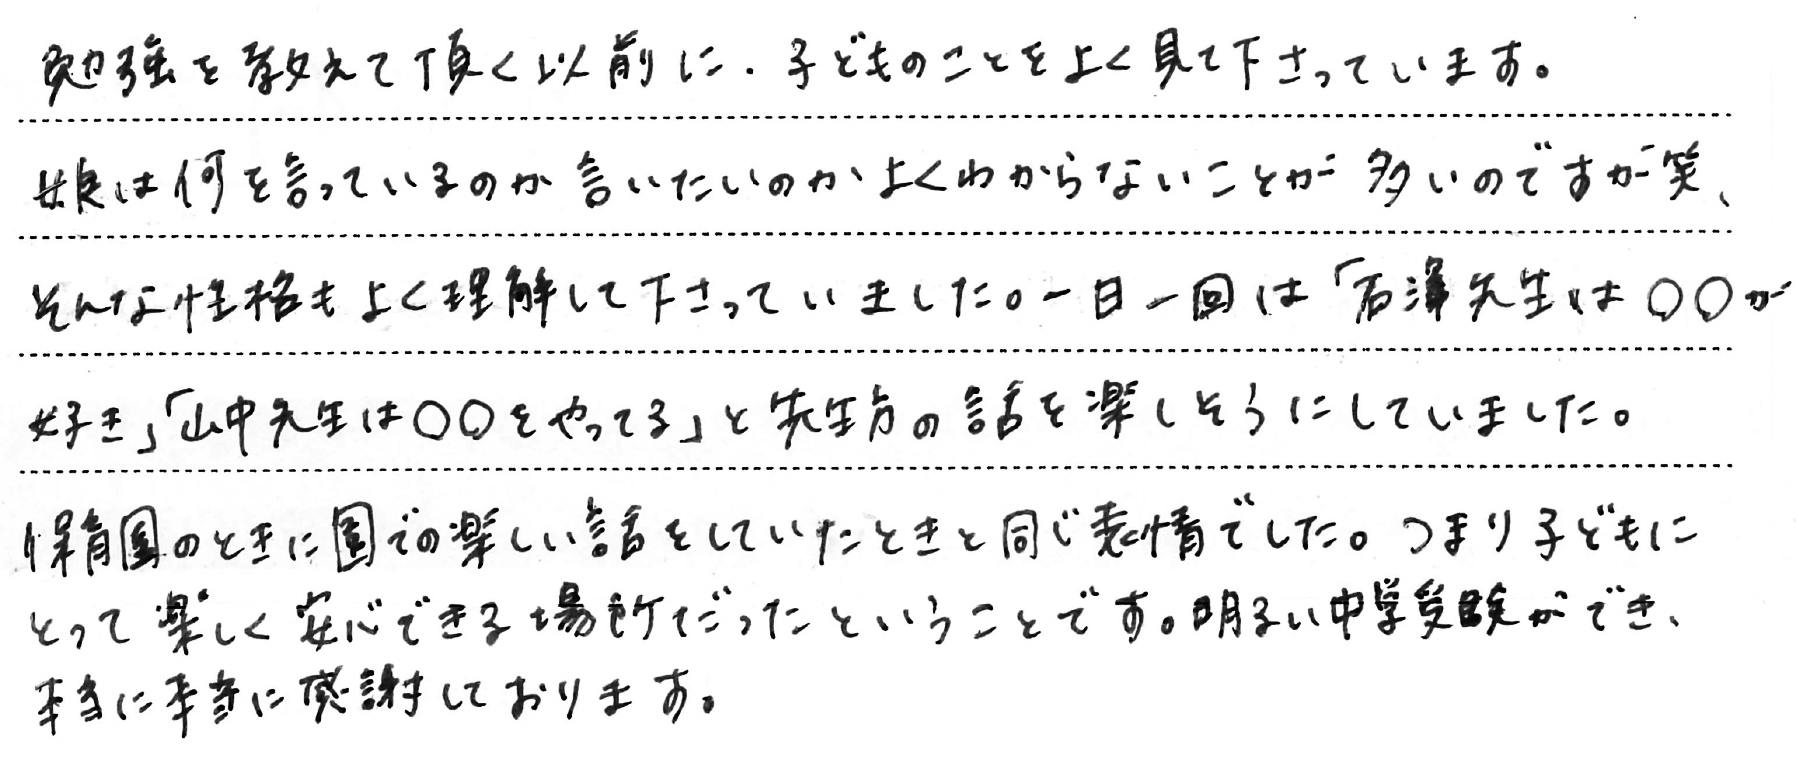 勉強を教えて頂く以前に、子どものことをよく見て下さっています。
娘は何を言っているのか言いたいのかよくわからないことが多いのですが笑、
そんな性格もよく理解して下さっていました。一日一回は「石澤先生は〇〇が
好き」「山中先生は〇〇をやってる」と先生方の話を楽しそうにしていました。
保育園のときに園での楽しい話をしていたときと同じ表情でした。つまり子どもに
とって楽しく安心できる場所だったということです。明るい中学受験ができ、
本当に本当に感謝しております。